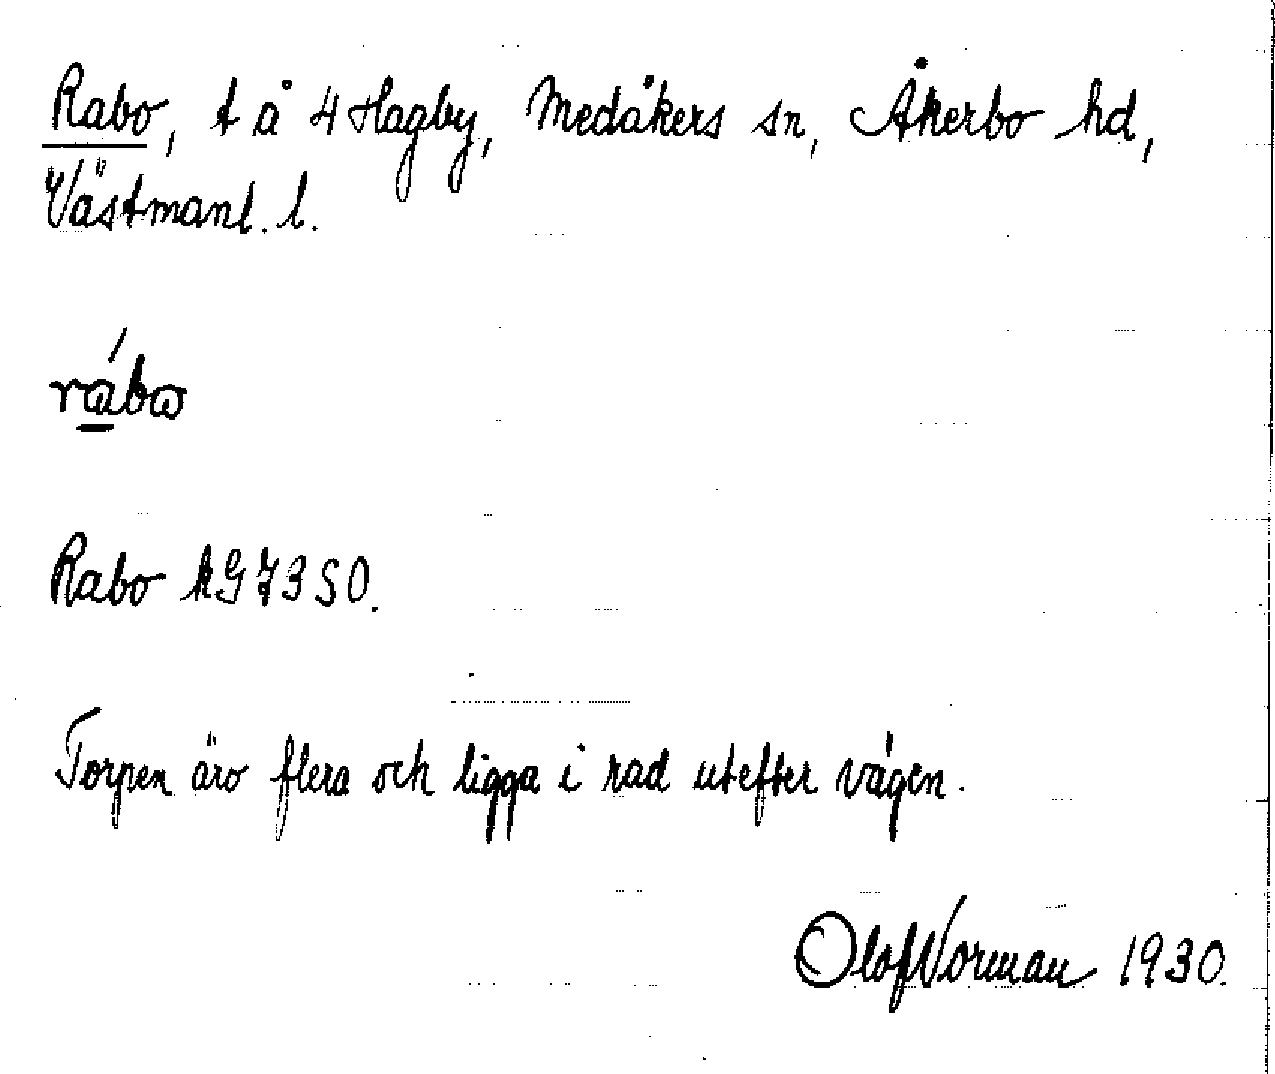 Rabo, t å 4 Hagby, Medåkers sn, Åkerbo hd,
Västmanl. l.
rábω
Rabo kG 73 SO.
Torpen äro flera och ligga i rad utefter vägen.
Olof Norman 1930.